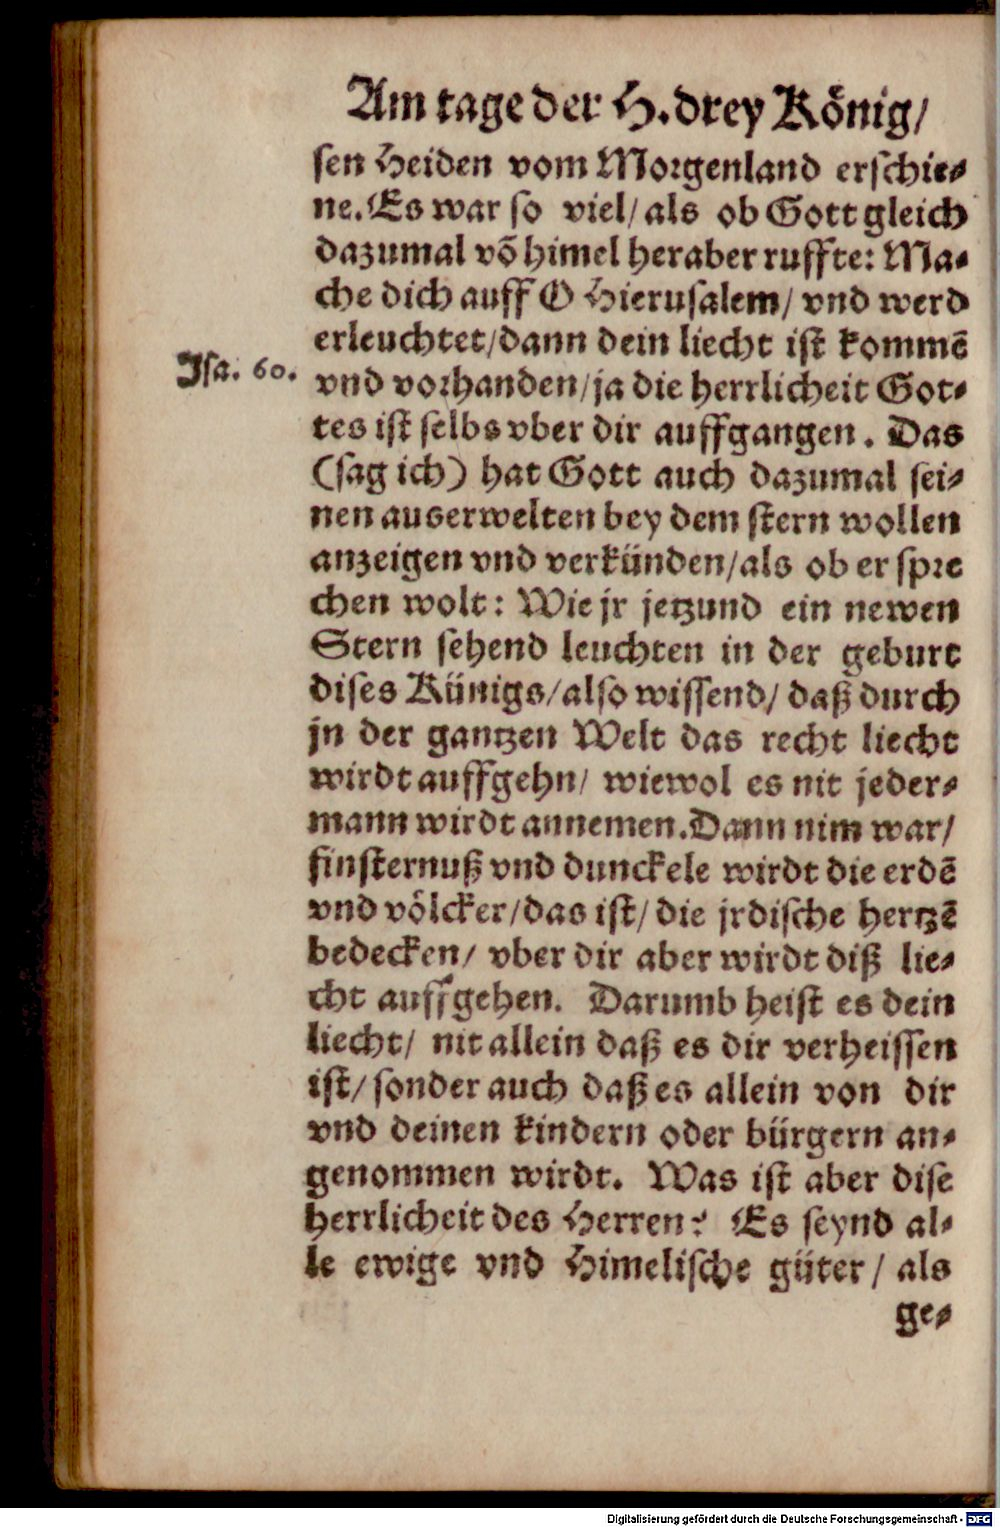 Am tage der H. drey König/
sen Heiden vom Morgenland erschie-
ne. Es war so viel/ als ob Gott gleich
dazumal võ himel heraber ruffte: Ma-
che dich auff O Hierusalem/ vnd werd
erleuchtet/ dann dein liecht ist kommẽ
Isa. 60. vnd vorhanden/ ja die herrlicheit Got-
tes ist selbs vber dir auffgangen. Das
(sag ich) hat Gott auch dazumal sei-
nen auserwelten bey dem stern wollen
anzeigen vnd verkünden/ als ob er spre
chen wolt: Wie jr jetzund ein newen
Stern sehend leuchten in der geburt
dises Künigs/ also wissend/ daß durch
jn der gantzen Welt das recht liecht
wirdt auffgehn/ wiewol es nit jeder-
mann wirdt annemen. Dann nim war/
finsternuß vnd dunckele wirdt die erdẽ
vnd völcker/ das ist/ die jrdische hertzẽ
bedecken/ vber dir aber wirdt diß lie-
cht auffgehen. Darumb heist es dein
liecht/ nit allein daß es dir verheissen
ist/ sonder auch daß es allein von dir
vnd deinen kindern oder bürgern an-
genommen wirdt. Was ist aber dise
herrlicheit des Herren? Es seynd al-
le ewige vnd Himelische güter/ als
ge-
Digitalisierung gefördert durch die Deutsche Forschungsgemeinschaft - DFG